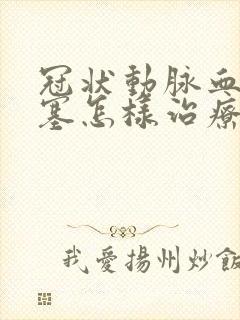 冠狀動脈血
塞怎樣治療
我愛揚州炒飯